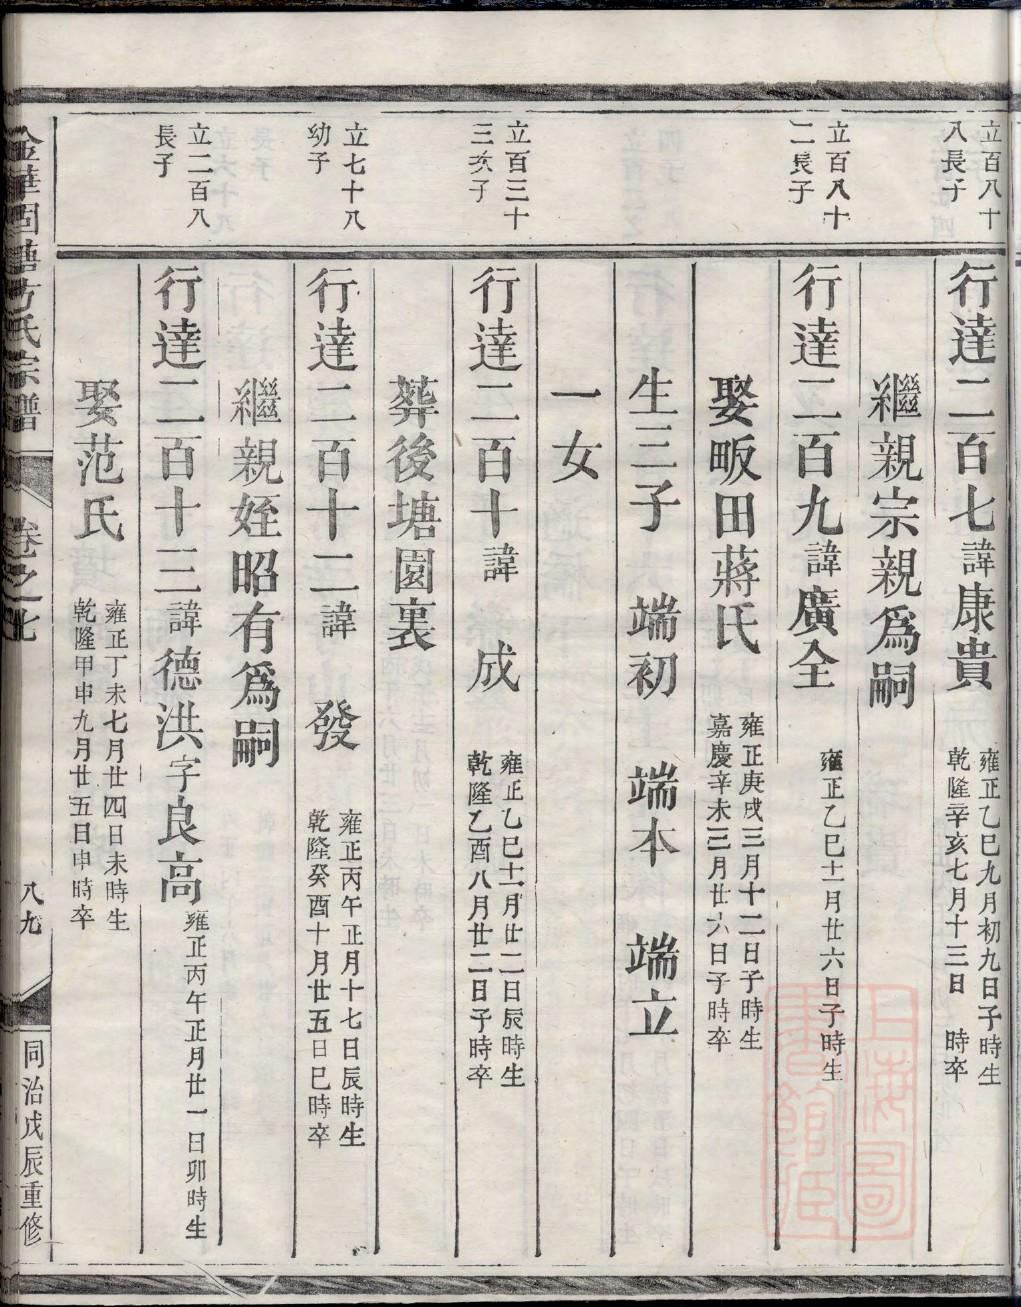 立百八十
八長子
行達二百七諱康貴
雍正乙巳九月初九日子時生
乾隆辛亥七月十三日　時卒
繼親宗親爲嗣
立百八十
二長子
行達二百九諱廣全
雍正乙巳十一月廿六日子時生
娶畈田蔣氏
雍正庚戌三月十二日子時生
嘉慶辛未三月廿六日子時卒
生三子　端初　端本　端立
一女
立百三十
三次子
行達二百十諱　成
雍正乙巳十一月廿二日辰時生
乾隆乙酉八月廿二日子時卒
葬後塘園裏
立七十八
幼子
行達二百十二諱　發
雍正丙午正月十七日辰時生
乾隆癸酉十月廿五日巳時卒
繼親姪昭有爲嗣
立二百八
長子
行達二百十三諱德洪字良高
雍正丙午正月廿一日卯時生
娶范氏
雍正丁未七月廿四日未時生
乾隆甲申九月廿五日申時卒
金華固塘方氏宗譜
卷之
八九
同治戊辰重修
上海圖書館藏